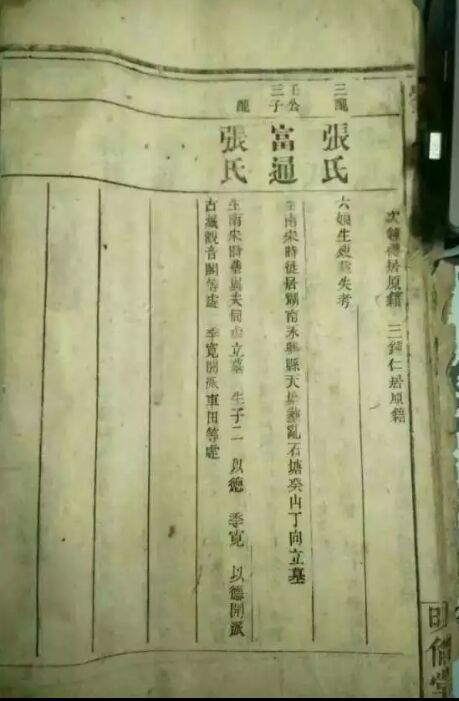 居原籍 三 仁居原籍
三配
張氏
六娘生歿葬失考
公三子
富通
生南宋時徙居湖南永興縣天塘葬亂石塘癸山丁向立墓
配
張氏
生南宋時葬與夫同處立墓 生子二 以德 季寬 以德開派
古城觀音閣等處 季寬開派車田等處
明 堂